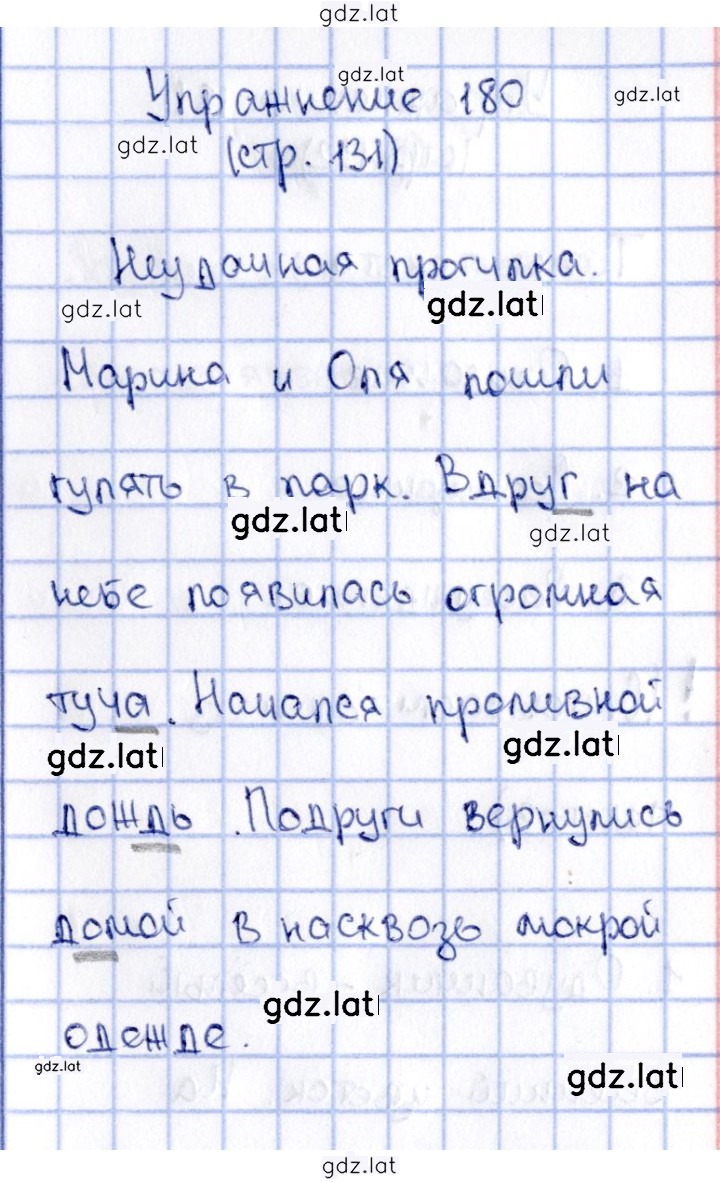 gdz.lat
Упражнение 180
gdz.lat
gdz.lat
gdz.lat
(стр. 131)
Неудачная прогулка.
gdz.lat
gdz.lat
Марина и Оля пошли
гулять в парк. Вдруг на
gdz.lat
gdz.lat
небе появилась огромная
туча. Начался проливной
gdz.lat
gdz.lat
дождь. Подруги вернулись
домой в насквозь мокрой
gdz.lat
одежде.
gdz.lat
gdz.lat
gdz.lat